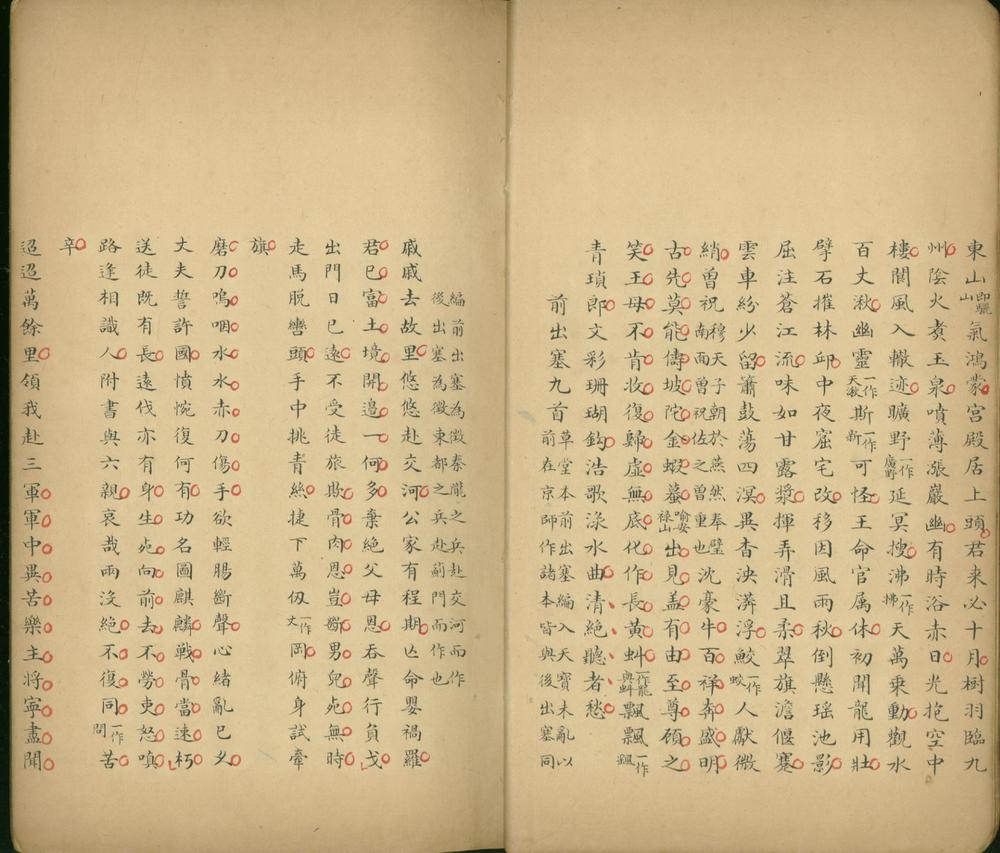 東山即驪山氣鴻蒙宮殿居上頭君来必十月樹羽臨九
州陰火煮玉泉噴薄漲巖幽有時浴赤日光抱空中
樓閬風入轍迹曠野一作廣野延冥搜沸一作拂天萬乗動觀水
百丈湫幽靈一作天湫斯一作新可怪王命官属休初聞龍用壯
擘石摧林邱中夜窟宅改移因風雨秋倒懸瑶池影
屈注蒼江流味如甘露漿揮弄滑且柔翠旗澹偃蹇
雲車紛少留簫鼓蕩四溟異香泱漭浮鮫一作蛟人獻微
綃曾祝穆天子朝於燕然奉璧南面曾祝佐之曾重也沈豪牛百祥奔盛明
古先莫能儔坡陀金蝦蟇喻安祿山出見盖有由至尊顾之
笑王母不肯收復歸虛無底化作長黄虯一作龍與虯飄飄一作飆
青瑣郎文彩珊瑚鈎浩歌淥水曲清絕聽者愁
前出塞九首草堂本前出塞編入天寶未亂以前在京師作諸本皆與後出塞同
編前出塞為徵秦隴之兵赴交河而作
後出塞為徵東都之兵赴薊門而作也
戚戚去故里悠悠赴交河公家有程期亡命嬰禍羅
君已富土境開邉一何多棄絕父母恩吞聲行負戈
出門日已遠不受徒旅欺骨肉恩豈斷男兒死無時
走馬脱轡頭手中挑青絲捷下萬仭一作丈岡俯身試搴
旗
磨刀嗚咽水水赤刀傷手欲輕腸斷聲心緒亂已久
丈夫誓許國憤惋復何有功名圖麒麟戰骨當速朽
送徒既有長遠伐亦有身生死向前去不勞吏怒嗔
路逢相識人附書與六親哀哉兩沒絕不復同一作問苦
辛
迢迢萬餘里領我赴三軍軍中異苦樂主将寧盡聞